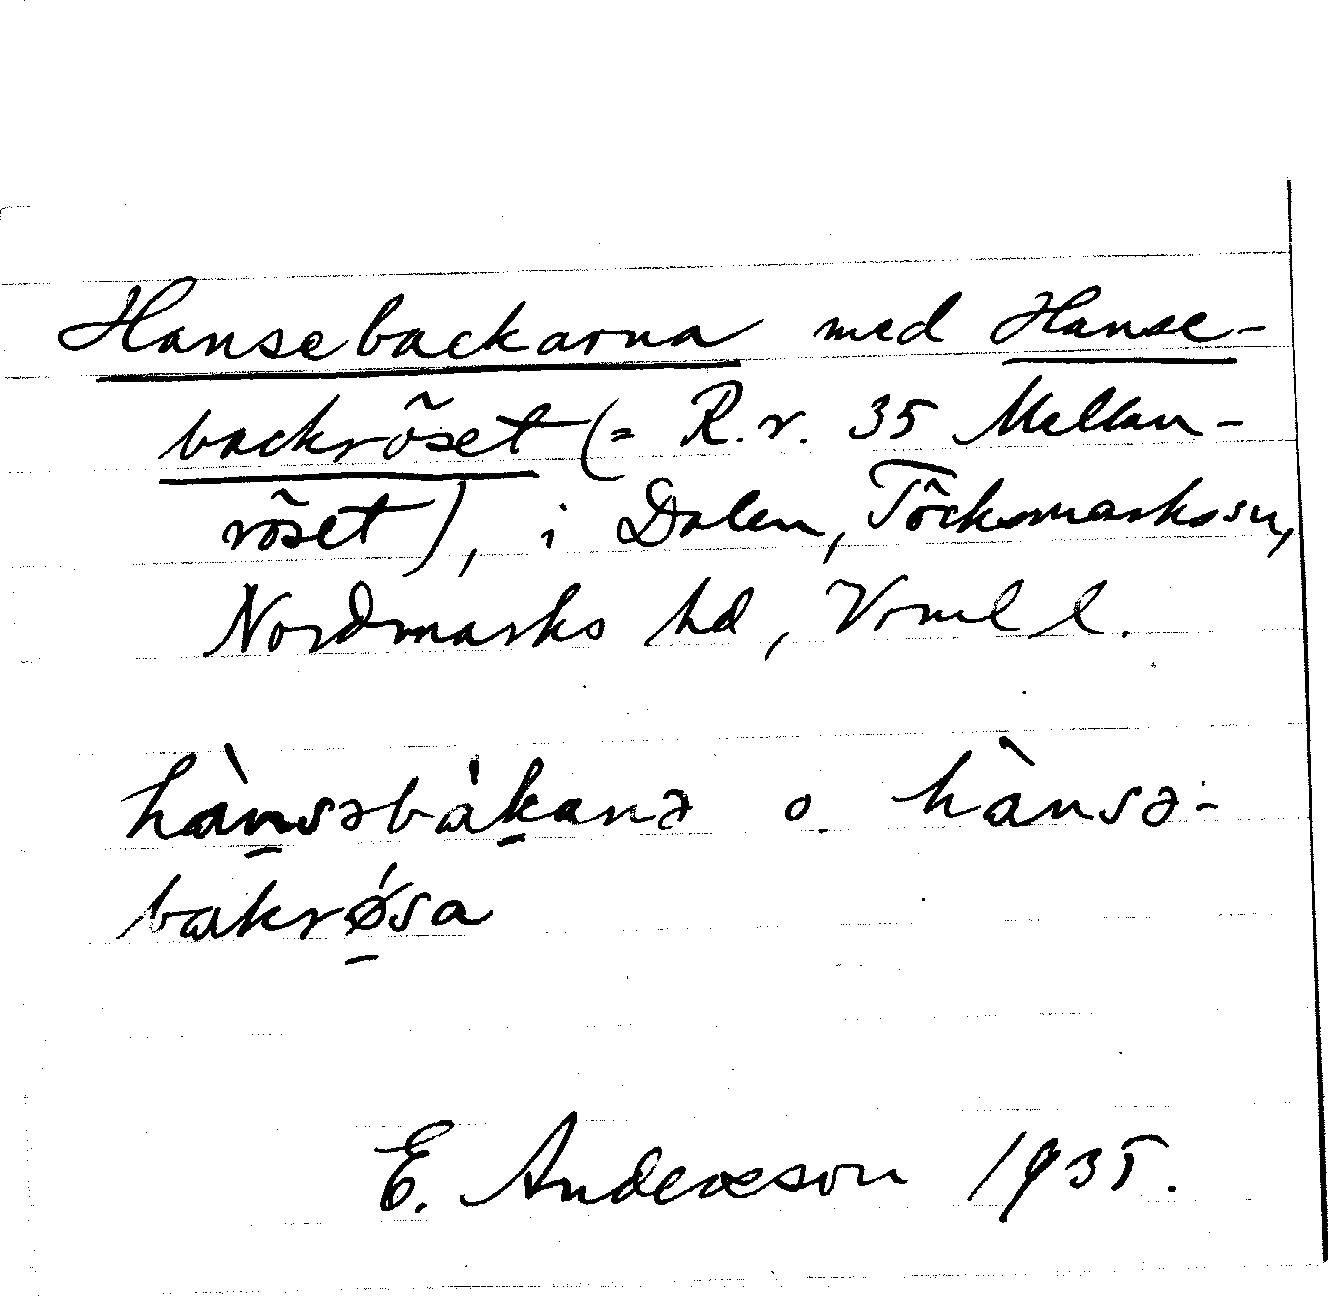 Hansebackarna med Hanse-
backröset (= R.r. 35 Mellan-
röset), i Dalen, Töcksmarkssn,
Nordmarks hd, Vrml l.
hànsəbàkanə o hànsə-
bakrǿsa
E. Andersson 1935.